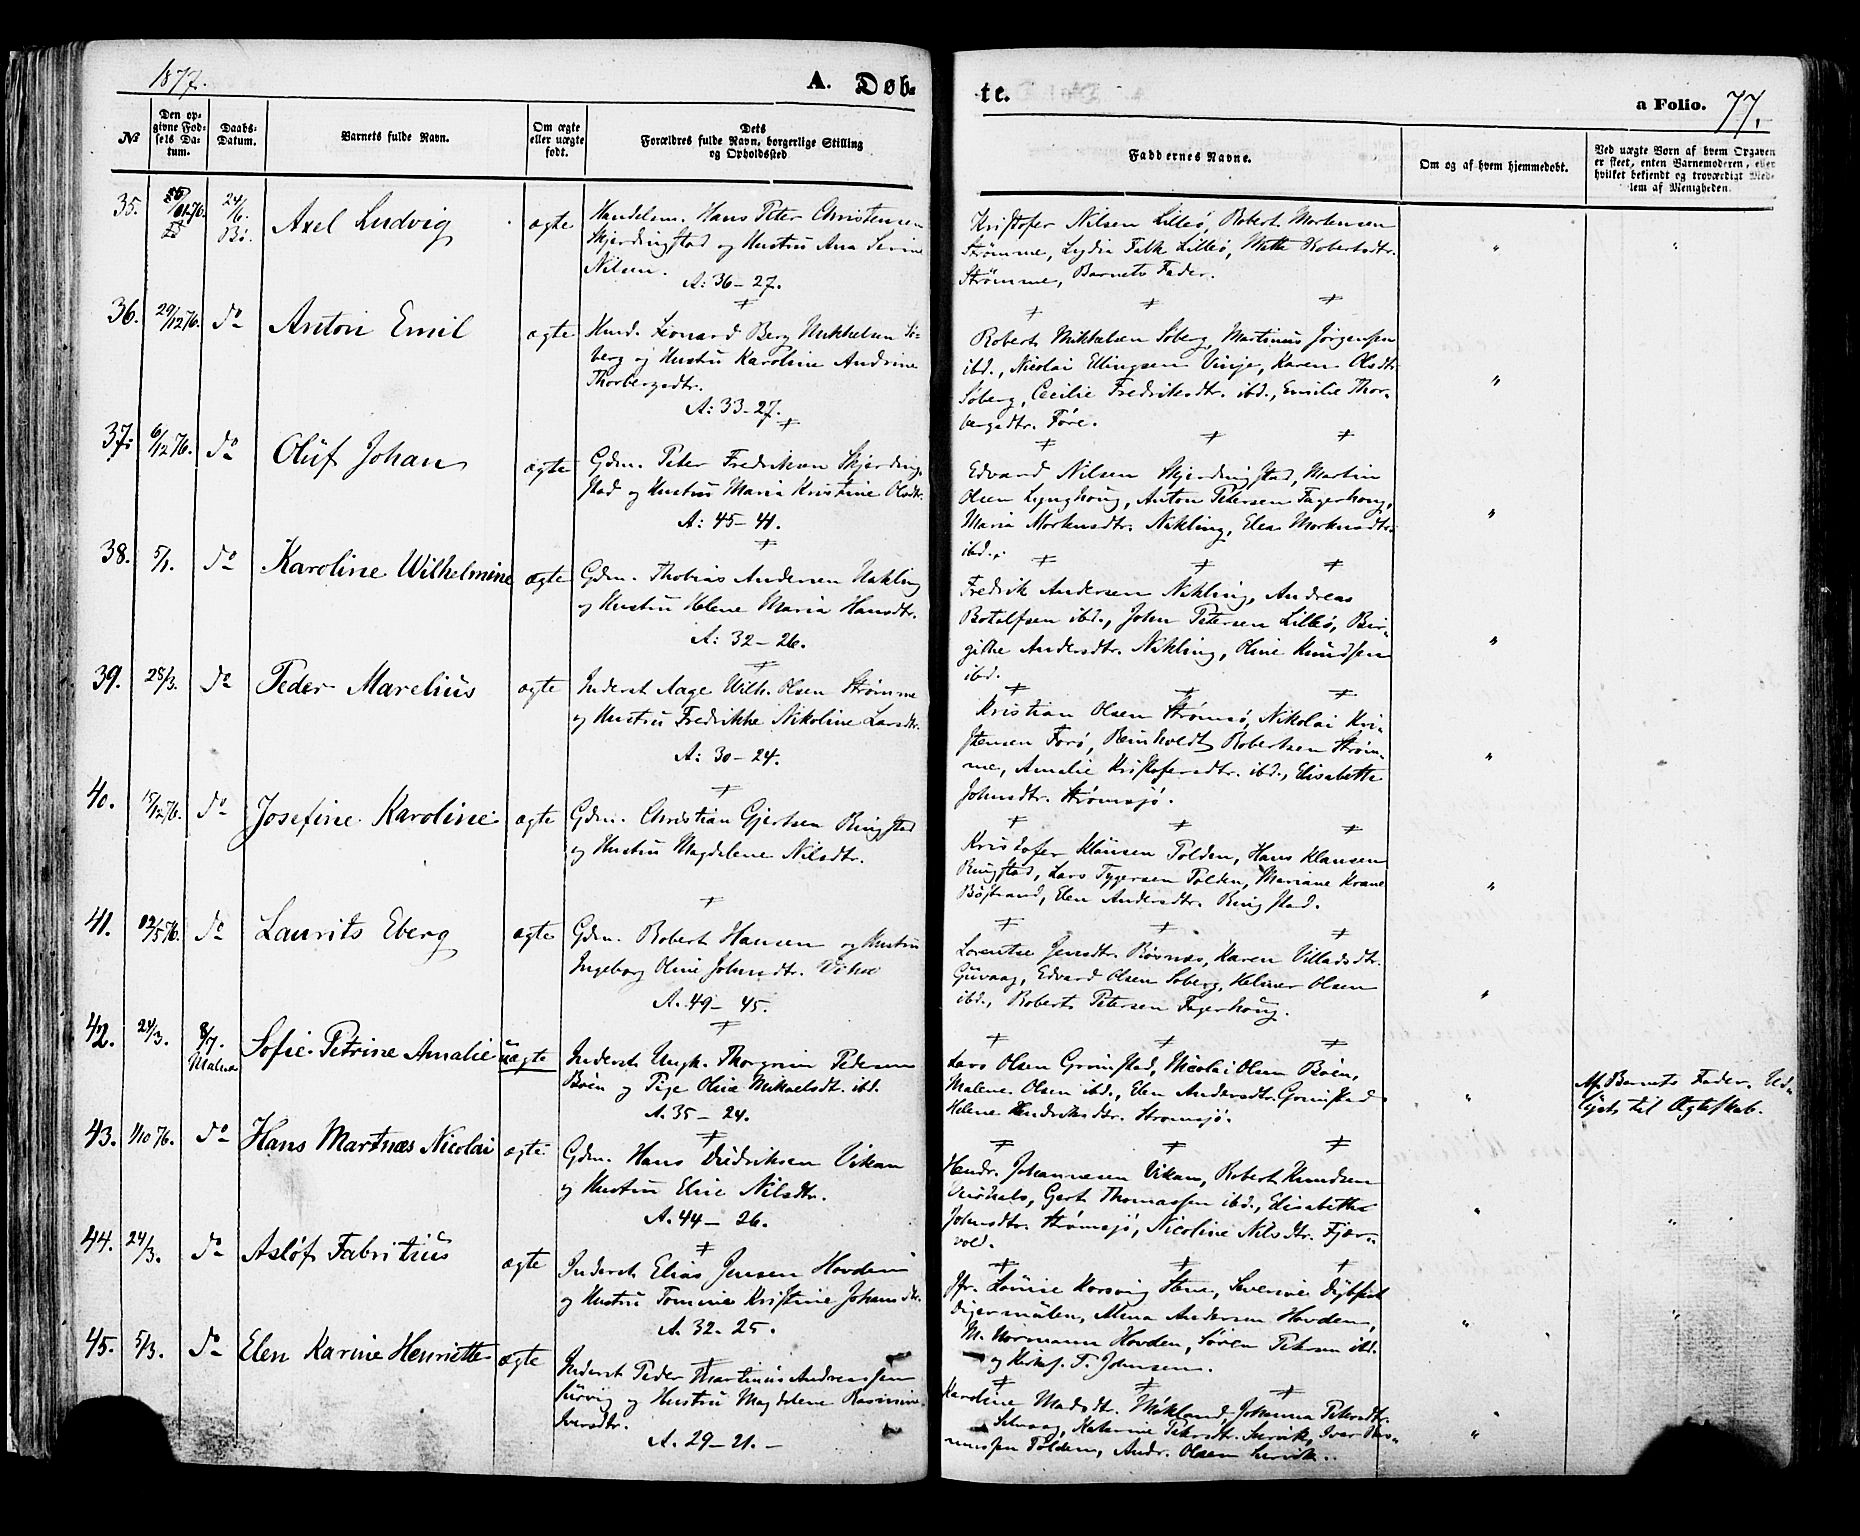 1877.
A. Døb-
te.
a Folio. 77.
№
Den op-
givne Fød-
sels Da-
tum.
Daabs-
Datum.
Barnets fulde Navn.
Om ægte
eller uægte
født.
Dets
Forældres fulde Navn, borgerlige Stilling
og Opholdssted
Faddernes Navne.
Om og af hvem hjemmedøbt.
Ved uægte Børn af hvem Opgaven
er skeet, enten Barnemoderen, eller
hvilket bekjendt og troværdigt Med-
lem af Menigheden.
35.
24/6.
Bø.
Axel Ludvig
ægte
Handelsm. Hans Peter Christensen
Skjerdingstad og Hustru Ana Serine
Nilsen.
A: 36-27.
Kristofer Nilsen Lilleø, Robert Mortensen
Strømme, Lydia Falk Lilleø, Mette Robertsdtr.
Strømme, Barnets Fader.
36. 29/12 76. do Anton Emil ægte
Leonard Berg Mikkelsen Sø-
berg og Hustru Karoline Andrine
Thorbergsdtr.
A: 33-27.
Robert Mikkelsen Søberg, Martinus Jørgensen
ibd., Nicolai Ellingsen Vinje, Karen Olsdtr.
Søberg, Cecilie Fredriksdtr. ibd., Emilie Thor-
bergsdtr. Føre.
37. 6/12 76. do Oluf Johan ægte
Gdm. Peter Fredriksen Skjerding-
stad og Hustru Maria Kristine Olsdtr.
A: 45-41.
Edvard Nilsen Skjerdingstad, Martin
Olsen Lynghoug, Anton Petersen Fagerhoug,
Maria Mortensdtr. Nikling, Elea Mortensdtr.
ibd.
38. 5/1. do Karoline Wilhelmine ægte
Gdm. Thobias Andersen Nikling
og Hustru Helene Maria Hansdtr.
A: 32-26.
Fredrik Andersen Nikling, Andreas
Botolfsen ibd., John Petersen Lilleø, Bir-
githe Andersdtr. Nikling, Oline Knudsen
ibd.
39. 28/3. do Peder Marelius ægte
Inderst Aage Wilh. Olsen Strømme
og Hustru Fredrikke Nikoline Larsdtr.
A: 30-24.
Kristian Olsen Strømsø, Nikolai Kri-
stensen Forø, Reinholdt Robertsen Strøm-
me, Amalie Kristofersdtr. ibd., Elisabetha
Johnsdtr. Strømsjø.
40. 15/12 76. do Josefine Karoline ægte
Gdm. Christian Gjertsen Ringstad
og Hustru Magdelene Nilsdtr.
Kristofer Klausen Tolden, Hans Klausen
Ringstad, Lars Tygersen Tolden, Mariane Krane
Bøstrand, Elen Andersdtr. Ringstad.
41. 12/5 76. do Laurits Eberg ægte
Gdm. Robert Hansen og Hustru
Ingeborg Oline Johnsdtr.
A. 49-45.
Lorentse Jensdtr. Røsnæs, Karen Villadsdtr.
Guvaag, Edvard Olsen Søberg, Helmer Olsen
ibd., Robert Petersen Fagerhoug.
42. 24/3. 8/7. Malnes Sofie Petrine Amalie uægte
Inderst Ungk. Thorgrim Pedersen
Bøen og Pige Olea Mikaelsdt. ibd.
A. 35-24.
Lars Olsen Grimstad, Nicolai Olsen Bøen,
Malene Olsen ibd., Elen Andersdtr. Grimstad
Helene Hendriksdtr. Strømsjø.
Af Barnets Fader. Ud-
lyst til Ægteskab.
43. 1/10 76. do Hans Martnæs Nicolai ægte
Gdm. Hans Didriksen Vikan
og Hustru Elise Nilsdtr.
A. 44-26.
Hendr. Johannesen Vikan, Robert Knudsen
Gert Thomassen ibd., Elisabetha
Johnsdtr. Strømsjø, Nicoline Nilsdtr. Fjær-
vold.
44. 24/3. do Asløf Fabritius ægte
Inderst Elias Jensen Hovden
og Hustru Tomine Kristine Johansdtr.
A. 32-25.
Jfr. Louise Korsvig Stene, Severine Dybfest
Digermulen, Alma Andersen Hovden,
M. Normann Hovden, Søren Petersen ibd.
og Kristf. F. Johnsen.
45. 5/3. do Elen Karine Henriette ægte
Inderst Peder Martinus Andreassen
Survig og Hustru Magdelene Rasmine
Iversdtr.
A. 29-21.-
Karoline Madsdt. Møkland, Johanna Petersdtr.
Selvaag, Katrine Petersdtr. Survik, Iver Ras-
mussen Tolden, Andr. Olsen Survik.